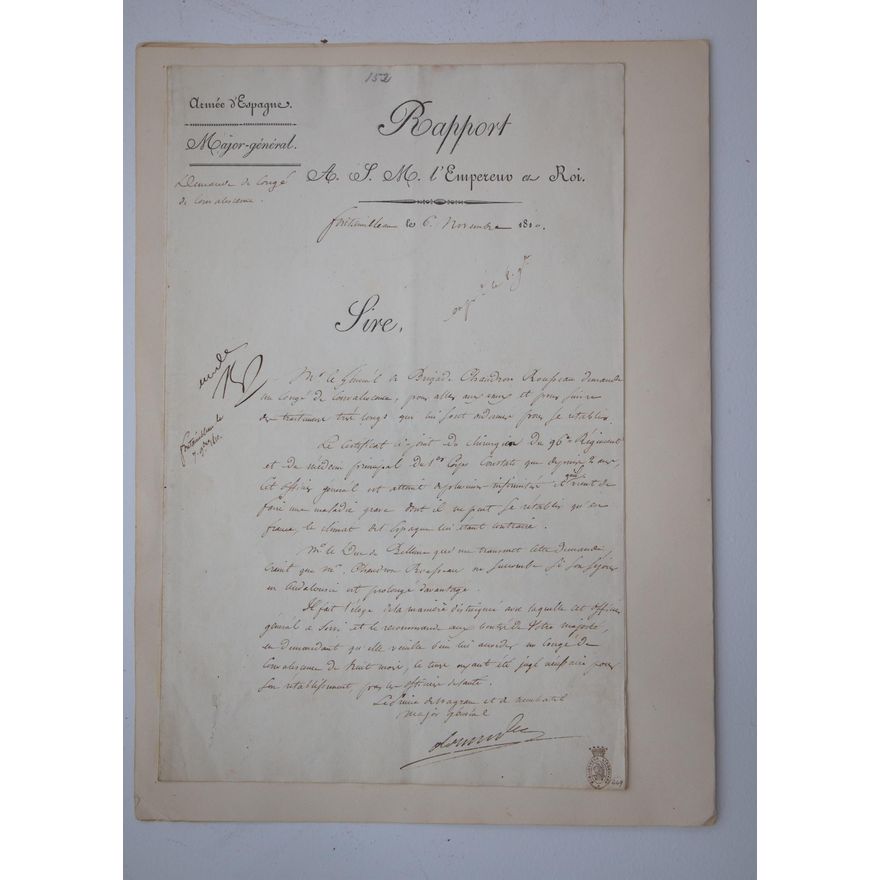 152
Armée d'Espagne.
Major-général.
Demande de Congé
de Convalescence.
Rapport
A. S. M. l'Empereur et Roi.
fontainebleau le 6. Novembre 1810.
Sire,
accordé
fontainebleau le
7. 9bre 1810.
Mr le Général de Brigade Chaudron Rousseau demande
un Congé de Convalescence, pour aller aux eaux et pour suivre
des traitemens très longs qui lui sont ordonnés pour se rétablir.
Le Certificat ci-joint du chirurgien du 96me Régiment
et du médecin principal du 1er Corps Constate que depuis 2 ans,
Cet officier général est atteint de plusieurs infirmités et qu'il vient de
faire une maladie grave dont il ne peut se rétablir qu'en
france, le climat de l'Espagne lui étant contraire.
Mr le Duc de Bellune qui me transmet cette demande
craint que Mr Chaudron Rousseau ne succombe si son séjour
en Andalousie est prolongé davantage.
Il fait l'éloge de la manière distinguée avec laquelle cet officier
général a servi et le recommande aux bontés de Votre majesté,
en demandant qu'elle veuille bien lui accorder un Congé de
Convalescence de huit mois, le tems ayant été jugé nécessaire pour
son rétablissement par les officiers de santé.
Le Prince de Wagram et de neuchatel
Major Général